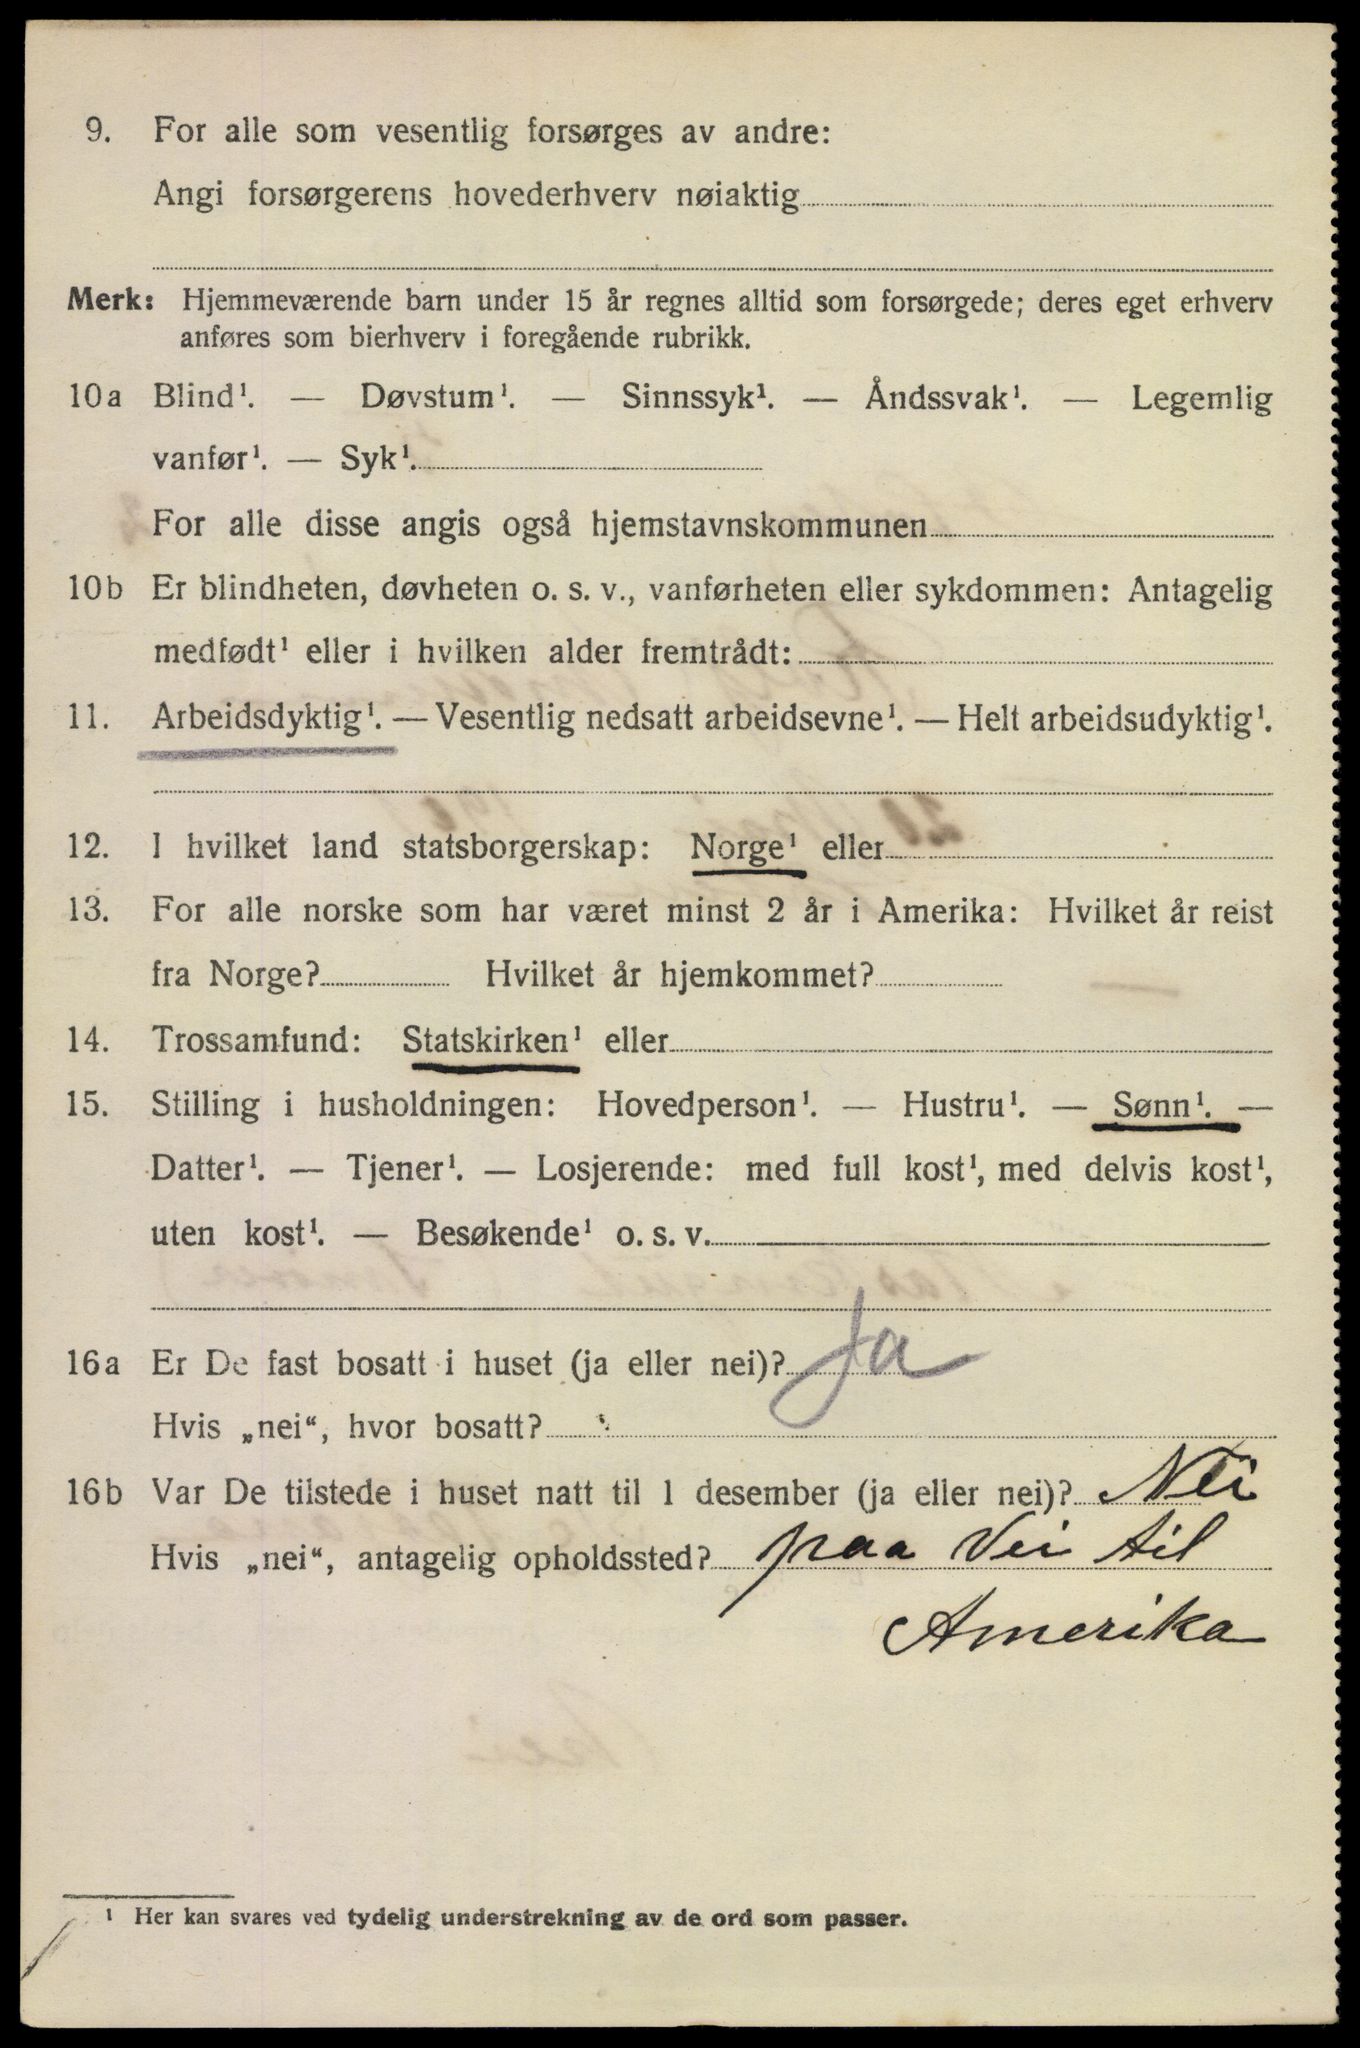 9. For alle som vesentlig forsørges av andre:
Angi forsørgerens hovederhverv nøiaktig
Merk: Hjemmeværende barn under 15 år regnes alltid som forsørgede; deres eget erhverv
anføres som bierhverv i foregående rubrikk.
10a Blind¹. — Døvstum¹. — Sinnssyk¹. — Åndssvak¹. — Legemlig
vanfør¹. — Syk¹.
For alle disse angis også hjemstavnskommunen
10b Er blindheten, døvheten o. s. v., vanførheten eller sykdommen: Antagelig
medfødt¹ eller i hvilken alder fremtrådt:
11. Arbeidsdyktig¹. — Vesentlig nedsatt arbeidsevne¹. — Helt arbeidsudyktig¹.
12. I hvilket land statsborgerskap: Norge¹ eller
13. For alle norske som har været minst 2 år i Amerika: Hvilket år reist
fra Norge? Hvilket år hjemkommet?
14. Trossamfund: Statskirken¹ eller
15. Stilling i husholdningen: Hovedperson¹. — Hustru¹. — Sønn¹. —
Datter¹. — Tjener¹. — Losjerende: med full kost¹, med delvis kost¹,
uten kost¹. — Besøkende¹ o. s. v.
16a Er De fast bosatt i huset (ja eller nei)? Ja
Hvis „nei“, hvor bosatt?
16b Var De tilstede i huset natt til 1 desember (ja eller nei)? Nei
Hvis „nei“, antagelig opholdssted? paa Vei til
Amerika
¹ Her kan svares ved tydelig understrekning av de ord som passer.